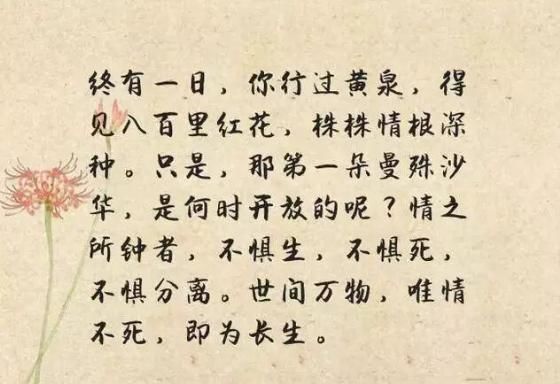 终有一日，你行过黄泉，得
见八百里红花，株株情根深
种。只是，那第一朵曼殊沙
华，是何时开放的呢？情之
所钟者，不惧生，不惧死，
不惧分离。世间万物，唯情
不死，即为长生。